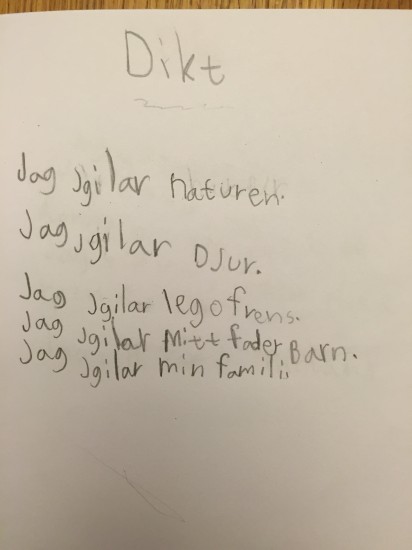 Dikt
Jag Jgilar naturen.
Jag Jgilar DJur.
Jag Jgilar legofrens.
Jag Jgilar Mitt fader Barn.
Jag Jgilar min familii